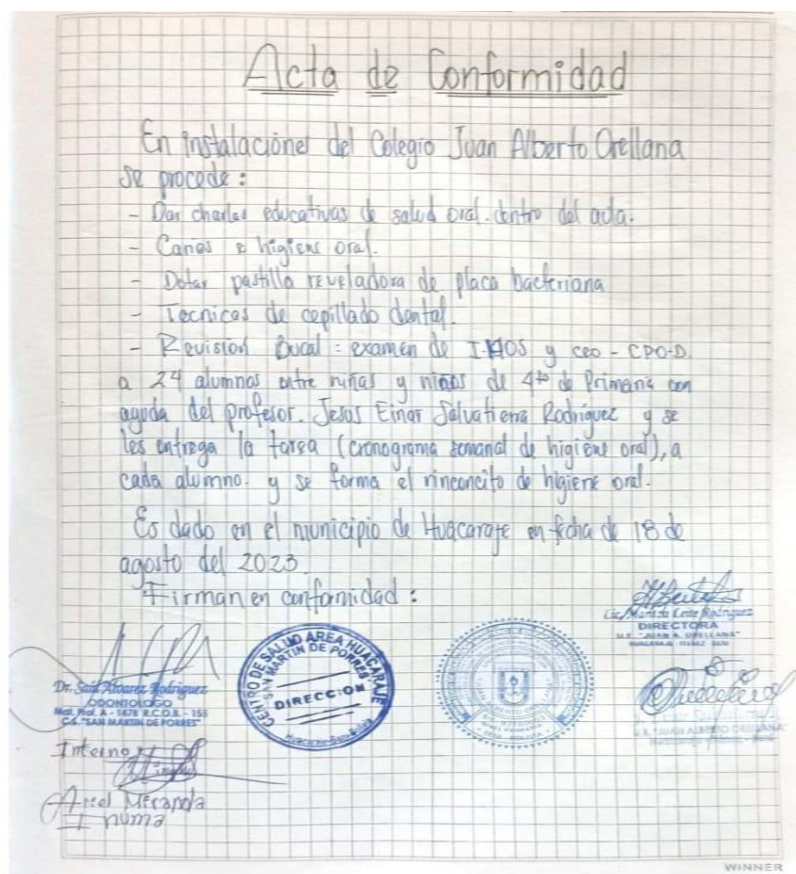 Acta de Conformidad
En instalaciones del Colegio Juan Alberto Orellana
se procede:
- Dar charlas educativas de salud oral. dentro del aula.
- Caries e higiene oral.
- Dotar pastilla reveladora de placa bacteriana
- Tecnicas de cepillado dental.
- Revision Bucal: examen de I-HOS y ceo - CPO-D.
a 24 alumnos entre niñas y niños de 4to de Primaria con
ayuda del profesor. Jesus Einar Salvatierra Rodriguez y se
les entrega la tarea (cronograma semanal de higiene oral), a
cada alumno. y se forma el rinconcito de higiene oral.
Es dado en el municipio de Huacaraje en fecha de 18 de
agosto del 2023.
Firman en conformidad:
Lic. Maritza Leite Rodriguez
DIRECTORA
U.E. "JUAN A. ORELLANA"
HUACARAJE - ITENEZ - BENI
CENTRO DE SALUD AREA HUACARAJE
SAN MARTIN DE PORRES
DIRECCION
Huacaraje-Beni-Bolivia
Dr. Saul Alvarez Rodriguez
ODONTOLOGO
Mat. Prof. A - 1478 R.C.O.B. - 155
C.S. "SAN MARTIN DE PORRES"
U.E. "JUAN ALBERTO ORELLANA"
Interno
Ariel Miranda
Inuma
WINNER